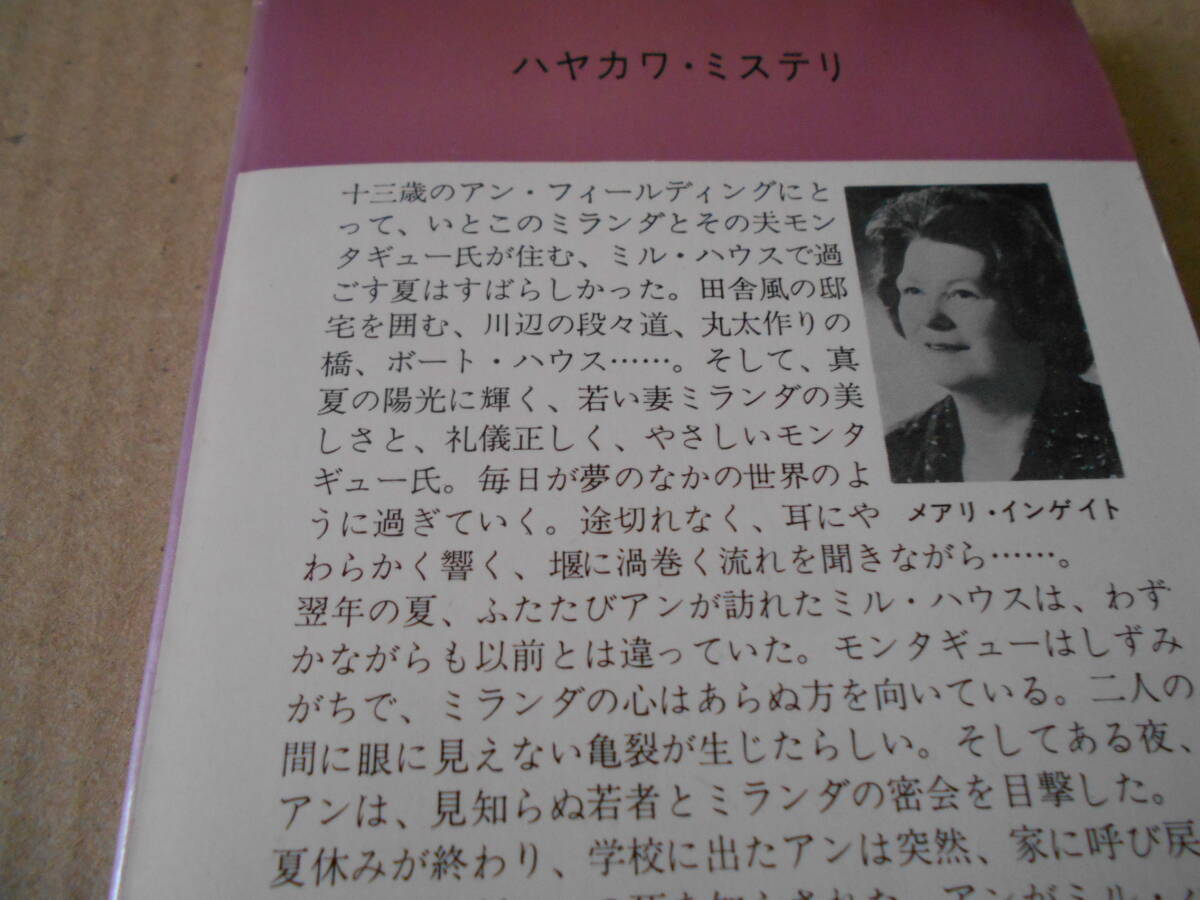 ハヤカワ・ミステリ
十三歳のアン・フィールディングにと
って、いとこのミランダとその夫モン
タギュー氏が住む、ミル・ハウスで過
ごす夏はすばらしかった。田舎風の邸
宅を囲む、川辺の段々道、丸太作りの
橋、ボート・ハウス……。そして、真
夏の陽光に輝く、若い妻ミランダの美
しさと、礼儀正しく、やさしいモンタ
ギュー氏。毎日が夢のなかの世界のよ
うに過ぎていく。途切れなく、耳にや
わらかく響く、堰に渦巻く流れを聞きながら……。
メアリ・インゲイト
翌年の夏、ふたたびアンが訪れたミル・ハウスは、わず
かながらも以前とは違っていた。モンタギューはしずみ
がちで、ミランダの心はあらぬ方を向いている。二人の
間に眼に見えない亀裂が生じたらしい。そしてある夜、
アンは、見知らぬ若者とミランダの密会を目撃した。
夏休みが終わり、学校に出たアンは突然、家に呼び戻